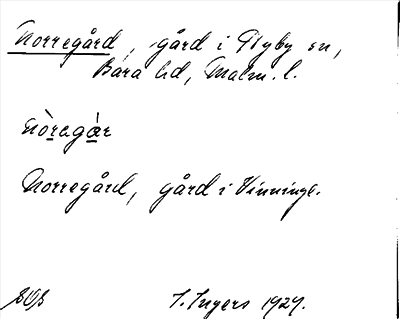 Norregård, gård i Nyby sn,
Bara hd, Malm. l.
nòragàr
Norregård, gård i Vinninge.
I. Ingers 1929.